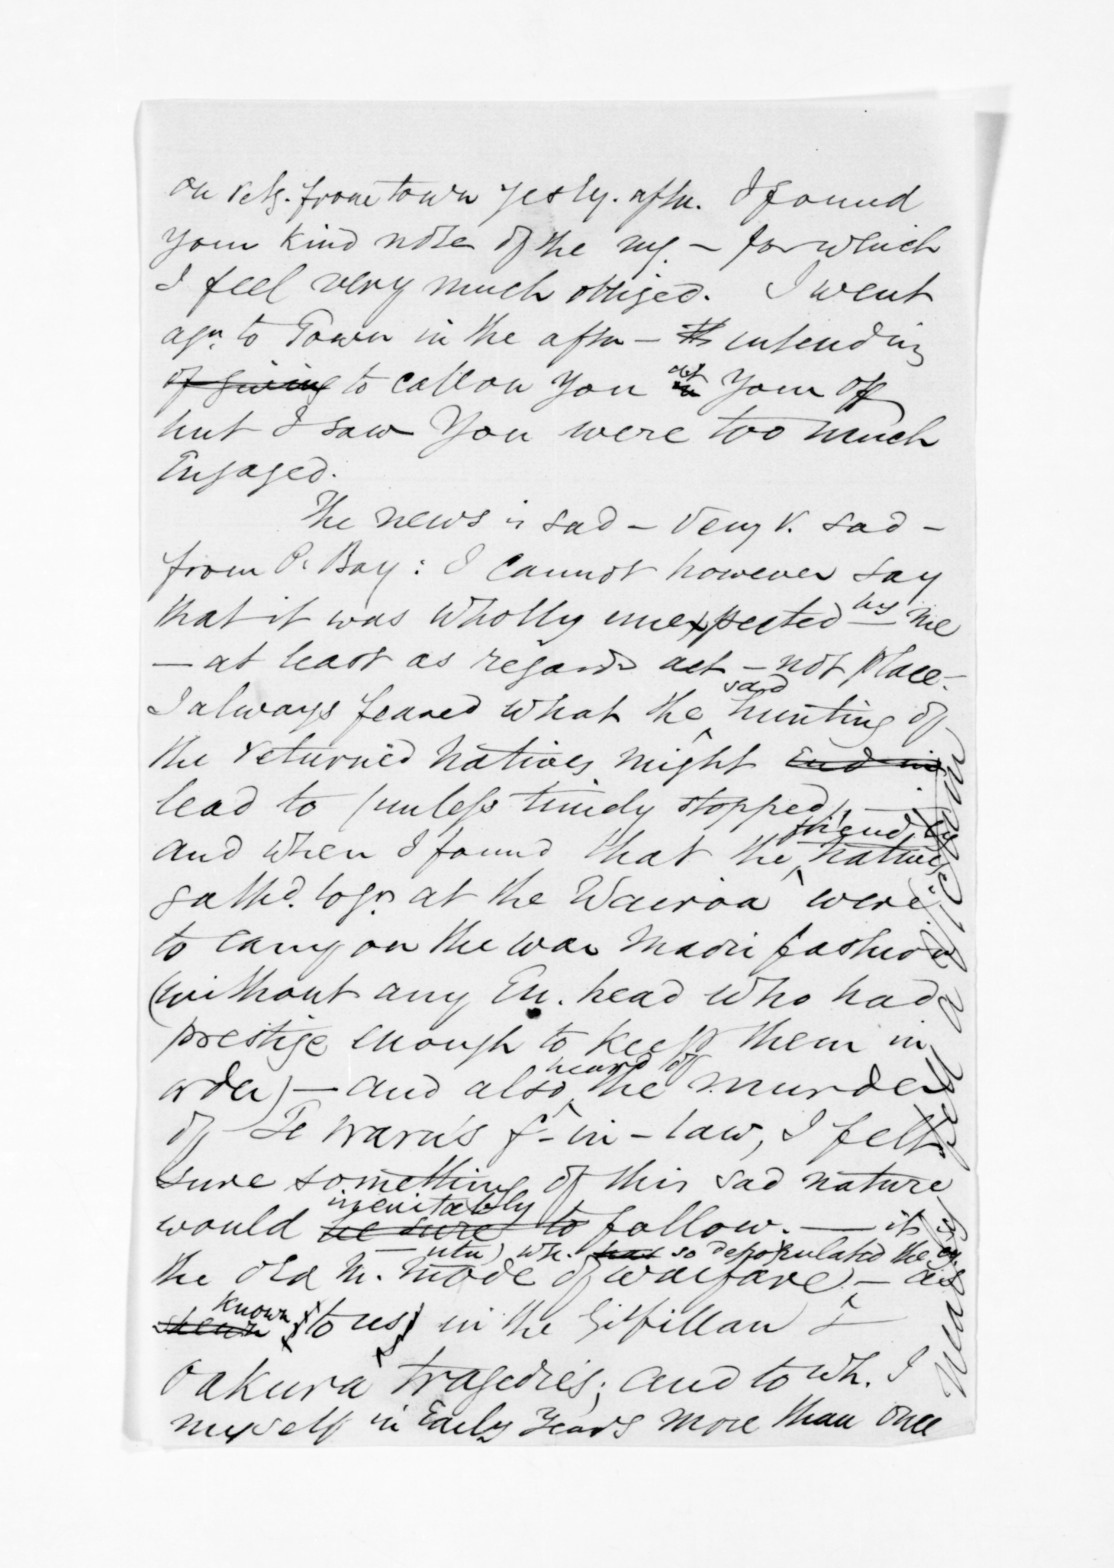 On retg. from town yesty. aftn. I found
your kind note of the mg. – for which
I feel very much obliged. I went
agn. to Town in the aftn – intending
of giving to call on you at your off
but I saw you were too much
Engaged.
The news is sad – very v. sad –
from P. Bay: I cannot however say
that it was wholly unexpected by me
– at least as regards act – not place. –
I always feared what the said hunting of
the returned natives might end in
lead to (unless timely stopped) –
and when I found that the friendly natives
gathd. togr. at the Wairoa were
to carry on the war Maori fashion
(without any En. head who had
prestige enough to keep them in
order) – and also heard of the murder
of Te Waru's f-in-law, I felt
sure something of this sad nature
would be sure to inevitably follow. – it is
the old M. mode of warfare, – (utu) wh. has so depopulated the – as
shewn known to us in the Gilfillan &
Oakura tragedies; and to wh. I
myself in Early Years more than once
nearly fell a victim